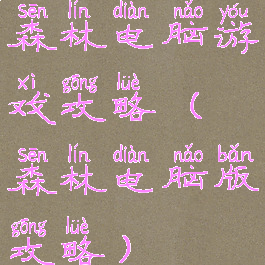 sēn lín diàn nǎo yóu
森林电脑游
xì gōng lüè
戏攻略（
sēn lín diàn nǎo bǎn
森林电脑版
gōng lüè
攻略）